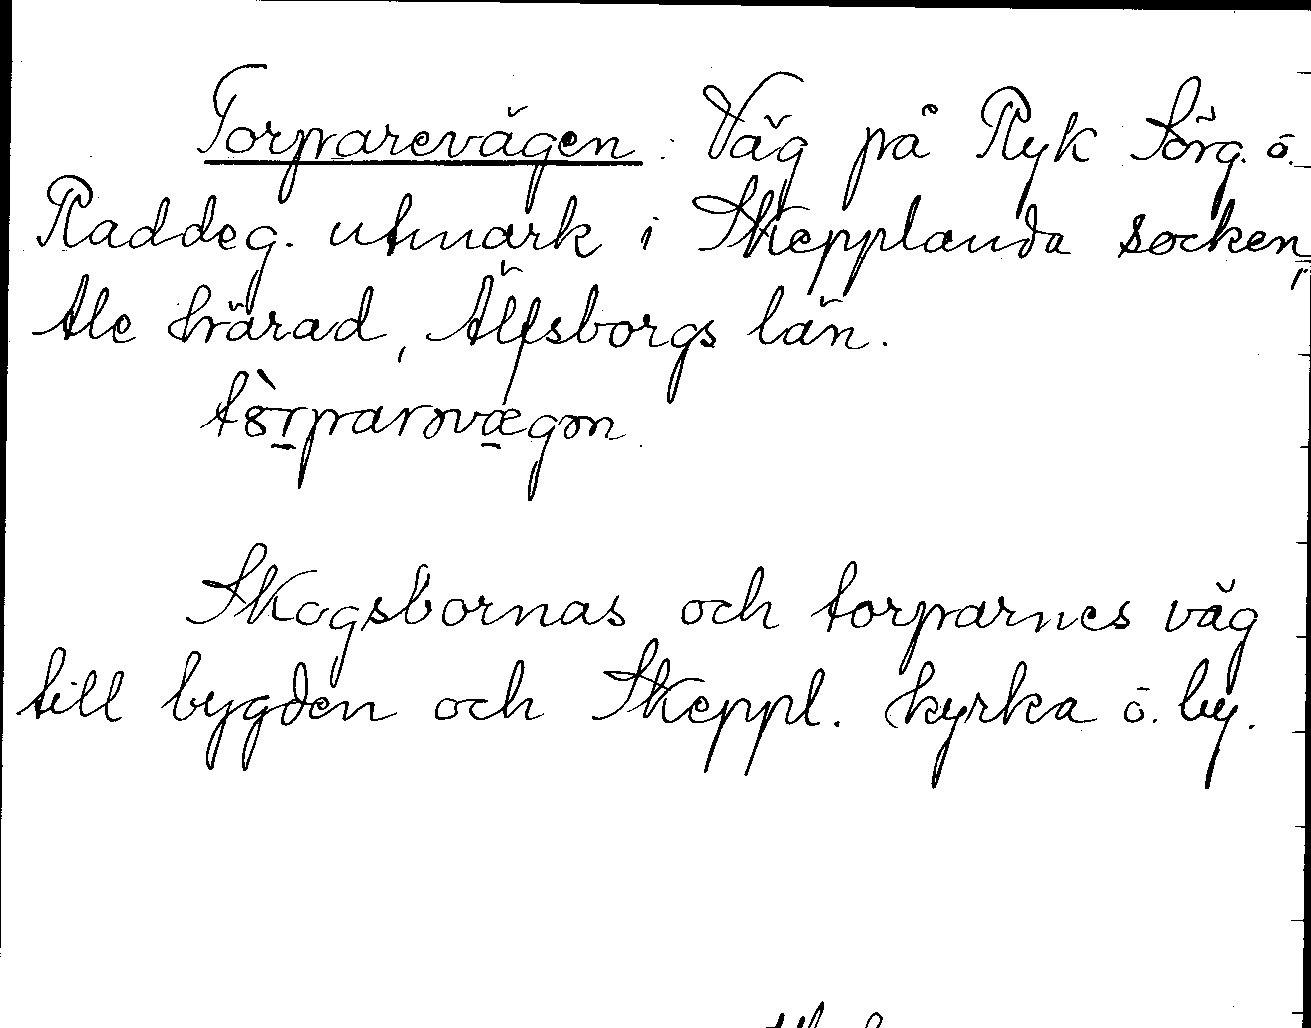 Torparevägen: Väg på Ryk Sörg. ö.
Raddeg. utmark i Skepplanda socken,
Ale härad, Älfsborgs län.
Skogsbornas och torparnes väg
till bygden och Skeppl. kyrka ö. by.